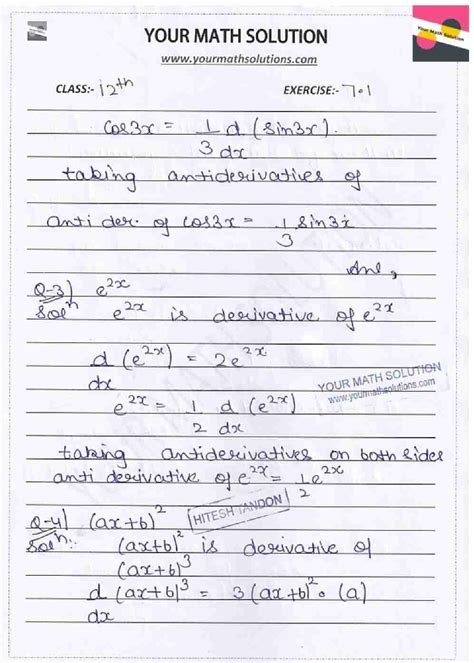 YOUR MATH SOLUTION
Your Math Solution
www.yourmathsolutions.com
CLASS:- 12th EXERCISE:- 7.1
cos3x = 1/3 d/dx (sin3x).
taking antiderivatives of
anti der. of cos3x = 1/3 sin3x
Ans,
Q-3) e^2x
Solⁿ e^2x is derivative of e^2x
d/dx (e^2x) = 2e^2x
YOUR MATH SOLUTION
www.yourmathsolutions.com
e^2x = 1/2 d/dx (e^2x)
taking antiderivatives on both sides
anti derivative of e^2x = 1/2 e^2x
HITESH TANDON
Q-4) (ax+b)^2
Solⁿ:- (ax+b)^2 is derivative of
(ax+b)^3
d/dx (ax+b)^3 = 3(ax+b)^2 • (a)